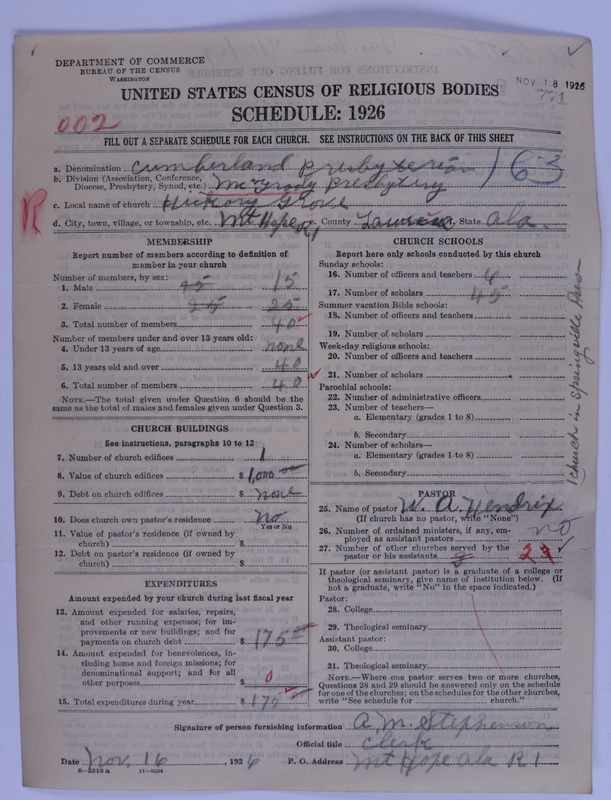 DEPARTMENT OF COMMERCE
BUREAU OF THE CENSUS
WASHINGTON
NOV 18 1926
UNITED STATES CENSUS OF RELIGIOUS BODIES
SCHEDULE: 1926
002
FILL OUT A SEPARATE SCHEDULE FOR EACH CHURCH. SEE INSTRUCTIONS ON THE BACK OF THIS SHEET
a. Denomination Cumberland Presbyterian
163
b. Division (Association, Conference, Diocese, Presbytery, Synod, etc.) McGrady Presbytery
c. Local name of church Hickory Grove
R
d. City, town, village, or township, etc. Mt Hope R1 e. County Lawrence f. State Ala
MEMBERSHIP
Report number of members according to definition of
member in your church
Number of members, by sex:
1. Male 15 15
2. Female 25 25
3. Total number of members 40
Number of members under and over 13 years old:
4. Under 13 years of age none
5. 13 years old and over 40
6. Total number of members 40
NOTE.—The total given under Question 6 should be
same as the total of males and females given under Question 3.
CHURCH BUILDINGS
See instructions, paragraphs 10 to 12
7. Number of church edifices 1
8. Value of church edifices $ 1,000 00
9. Debt on church edifices $ none
10. Does church own pastor's residence No
Yes or No
11. Value of pastor's residence (if owned by
church) $
12. Debt on pastor's residence (if owned by
church) $
EXPENDITURES
Amount expended by your church during last fiscal year
13. Amount expended for salaries, repairs,
and other running expenses; for im-
provements or new buildings; and for
payments on church debt $ 175 00
14. Amount expended for benevolences, in-
cluding home and foreign missions; for
denominational support; and for all
other purposes $ 0
15. Total expenditures during year $ 175
CHURCH SCHOOLS
Report here only schools conducted by this church
Sunday schools:
16. Number of officers and teachers 6
17. Number of scholars 45
Summer vacation Bible schools:
18. Number of officers and teachers
19. Number of scholars
Week-day religious schools:
20. Number of officers and teachers
21. Number of scholars
Parochial schools:
22. Number of administrative officers
23. Number of teachers—
a. Elementary (grades 1 to 8)
b. Secondary
24. Number of scholars—
a. Elementary (grades 1 to 8)
b. Secondary
1 Church in Springville Pres
PASTOR
25. Name of pastor W. A. Hendrix
(If church has no pastor, write "None")
26. Number of ordained ministers, if any, em-
ployed as assistant pastors no
27. Number of other churches served by the
pastor or his assistants 2
If pastor (or assistant pastor) is a graduate of a college or
theological seminary, give name of institution below. (If
not a graduate, write "No" in the space indicated.)
Pastor:
28. College
29. Theological seminary
Assistant pastor:
30. College
31. Theological seminary
NOTE.—Where one pastor serves two or more churches,
Questions 28 and 29 should be answered only on the schedule
for one of the churches; on the schedules for the other churches,
write "See schedule for church."
Signature of person furnishing information A. M. Stephenson
Official title Clerk
Date Nov. 16, 1926 P. O. Address Mt Hope Ala R1
8—5518a 11—9054